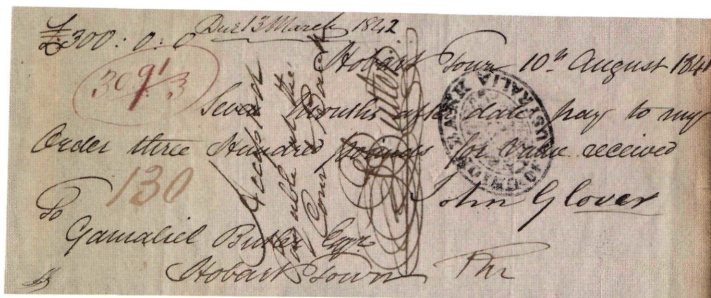 £300:0:0 Due 13 March 1842
Hobart Town 10th August 1841
309 1/3
Seven Months after date pay to my
Order three Hundred pounds for Value received
130
John Glover
To
Gamaliel Butler Esqr.
Hobart Town
Accepted
Payable at the
G Butler
AUSTRALIA